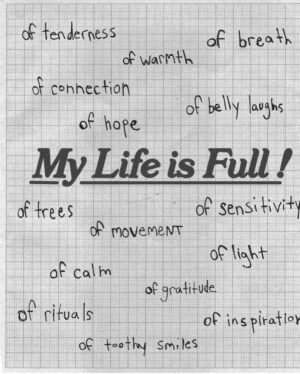 of tenderness
of breath
of warmth
of connection
of belly laughs
of hope
My Life is Full!
of trees
of sensitivity
of movement
of light
of calm
of gratitude
of rituals
of inspiration
of toothy smiles